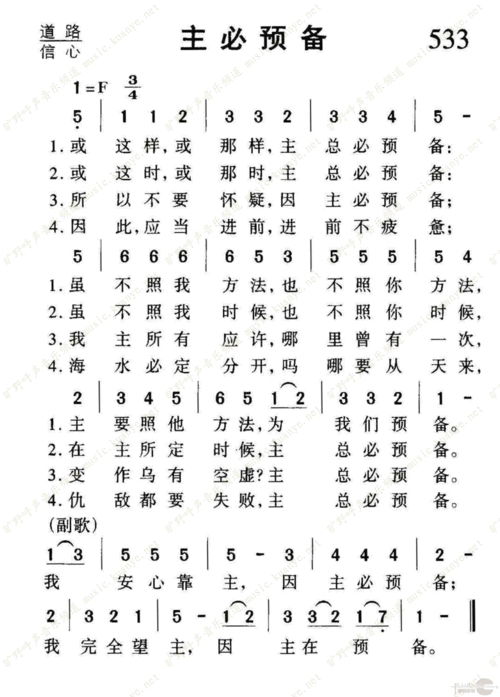 道路
信心
主必预备
533
1=F 3/4
5 | 1 1 2 | 3 3 2 | 3 3 4 | 5 -
1.或 这样,或 那样,主 总必预 备;
2.或 这时,或 那时,主 总必预 备;
3.所 以不要 怀疑,因 主必预 备;
4.因 此,应当 进前,进前 不疲 惫;
5 | 6 6 6 | 6 5 3 | 5 5 5 | 5 4
1.虽 不照我 方法,也 不照你 方法,
2.虽 不照我 时候,也 不照你 时候,
3.我 主所有 应许,哪 里曾有 一次,
4.海 水必定 分开,吗 哪要从 天来,
2 | 3 4 5 | 6 5 1 2 | 3 3 2 | 1 -
1.主 要照他 方法,为 我们预 备。
2.在 主所定 时候,主 总必预 备。
3.变 作乌有 空虚?主 总必预 备。
4.仇 敌都要 失败,主 总必预 备。
(副歌)
1 3 | 5 5 5 | 5 - 3 | 3 3 4 | 2 -
我 安心靠 主, 因 主必预 备;
2 | 3 2 1 | 5 - 1 2 | 3 3 2 1 7 | 1 - ‖
我 完全望 主, 因 主在预 备。
旷野呼声音乐频道 music.kuanye.net